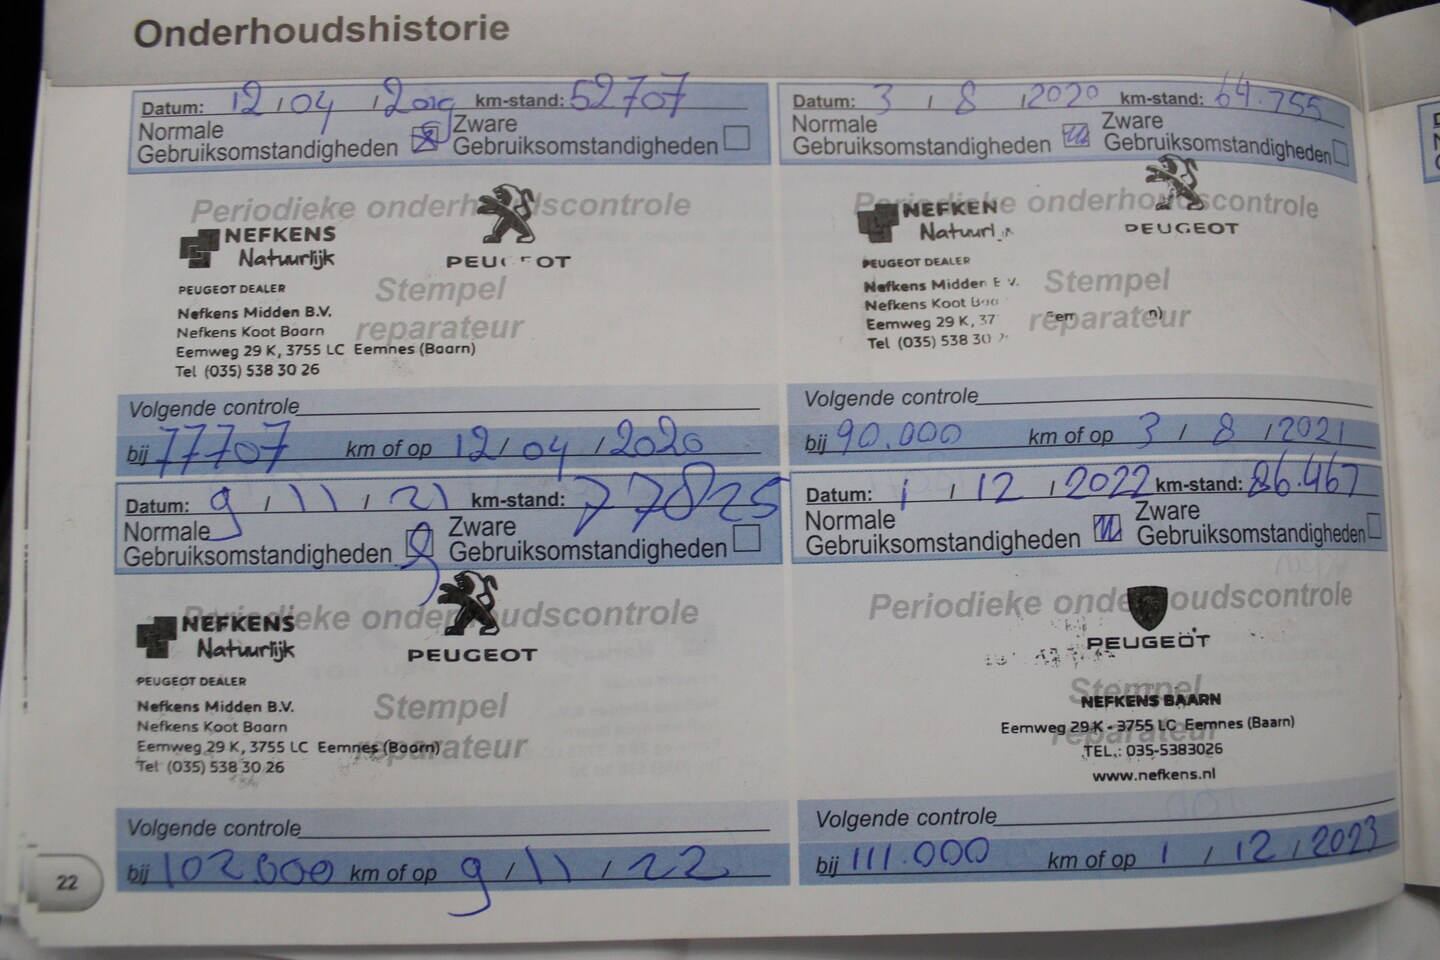 Onderhoudshistorie
Datum: 12 / 04 / 2019 km-stand: 52707
Normale Gebruiksomstandigheden
Zware Gebruiksomstandigheden
Periodieke onderhoudscontrole
NEFKENS
Natuurlijk
PEUGEOT
PEUGEOT DEALER
Stempel
Nefkens Midden B.V.
Nefkens Koot Baarn
reparateur
Eemweg 29 K, 3755 LC Eemnes (Baarn)
Tel (035) 538 30 26
Volgende controle
bij 77707 km of op 12 / 04 / 2020
Datum: 3 / 8 / 2020 km-stand: 64.755
Normale Gebruiksomstandigheden
Zware Gebruiksomstandigheden
Periodieke onderhoudscontrole
NEFKEN
Natuurl
PEUGEOT
PEUGEOT DEALER
Stempel
Nefkens Midden
Nefkens Koot
reparateur
Eemweg 29 K, 37
Tel (035) 538 30
Volgende controle
bij 90.000 km of op 3 / 8 / 2021
Datum: 9 / 11 / 21 km-stand: 77825
Normale Gebruiksomstandigheden
Zware Gebruiksomstandigheden
Periodieke onderhoudscontrole
NEFKENS
Natuurlijk
PEUGEOT
PEUGEOT DEALER
Stempel
Nefkens Midden B.V.
Nefkens Koot Baarn
reparateur
Eemweg 29 K, 3755 LC Eemnes (Baarn)
Tel (035) 538 30 26
Volgende controle
bij 102.000 km of op 9 / 11 / 22
Datum: 1 / 12 / 2022 km-stand: 86.467
Normale Gebruiksomstandigheden
Zware Gebruiksomstandigheden
Periodieke onderhoudscontrole
PEUGEOT
Stempel
NEFKENS BAARN
Eemweg 29 K - 3755 LC Eemnes (Baarn)
reparateur
TEL.: 035-5383026
www.nefkens.nl
Volgende controle
bij 111.000 km of op 1 / 12 / 2023
22